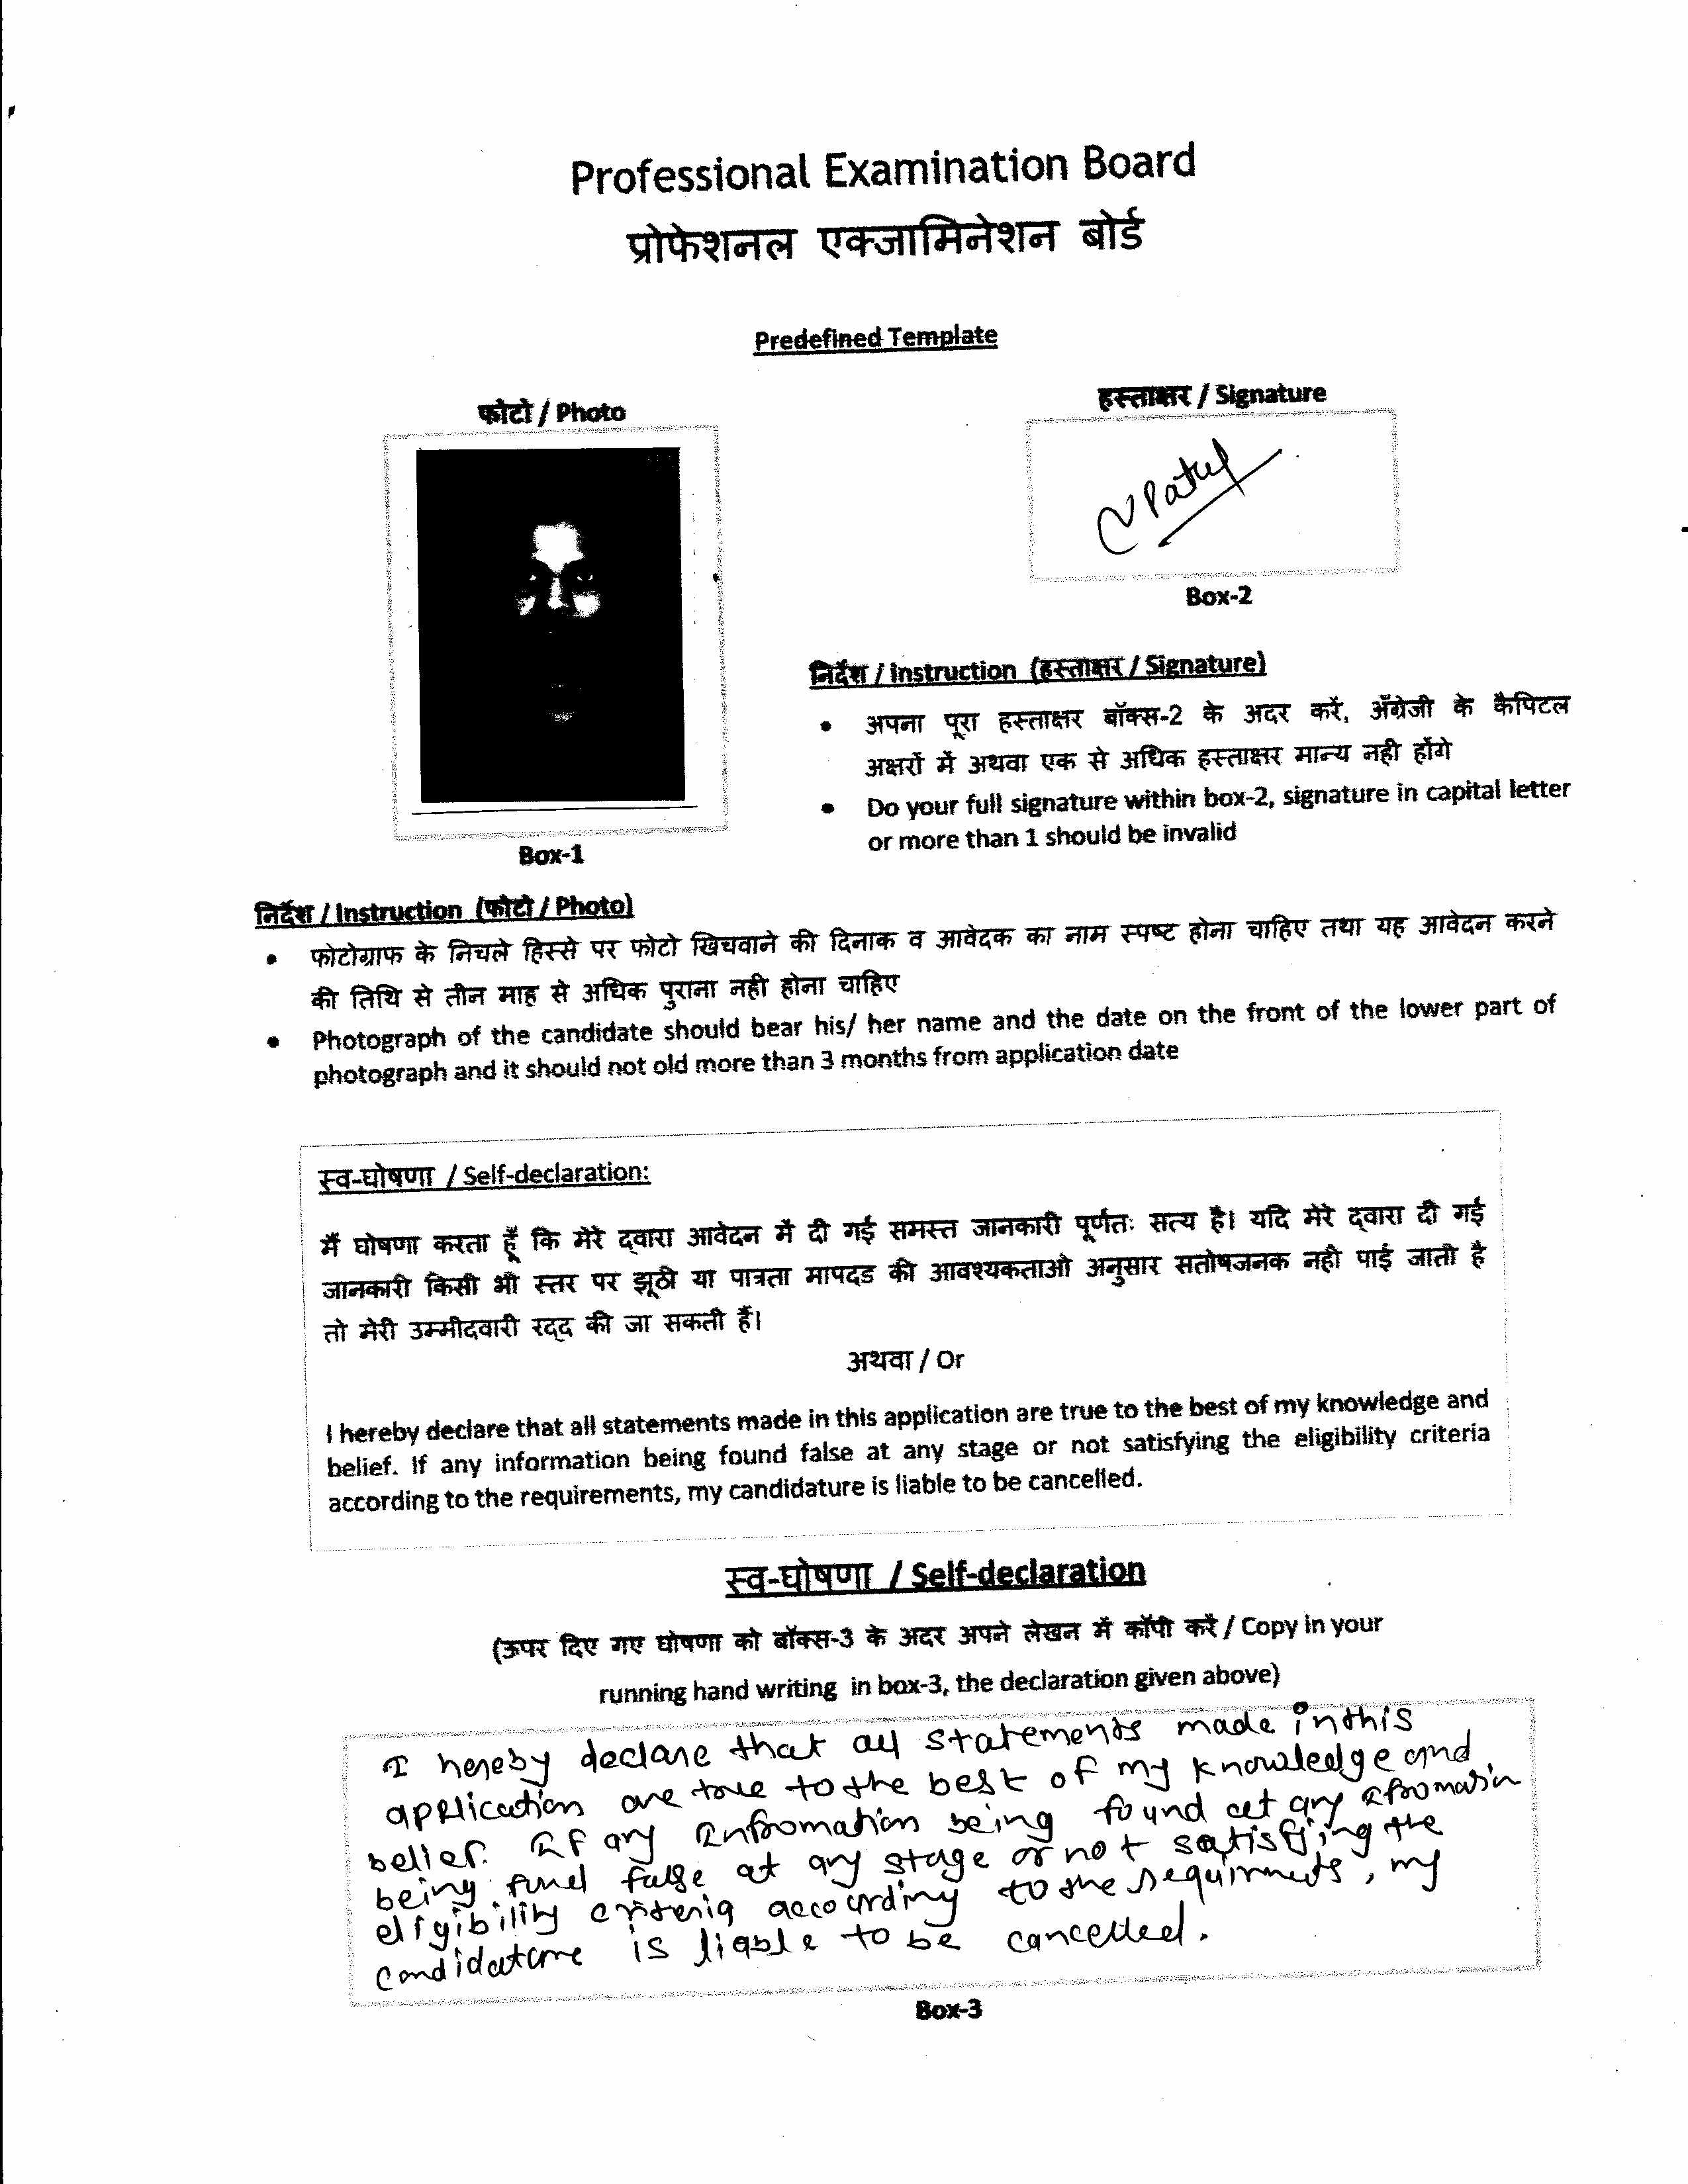 Professional Examination Board
प्रोफेशनल एक्जामिनेशन बोर्ड
Predefined Template
फोटो / Photo
हस्ताक्षर / Signature
Box-2
निर्देश / Instruction (हस्ताक्षर / Signature)
• अपना पूरा हस्ताक्षर बॉक्स-2 के अदर करें, अँग्रेजी के कैपिटल
अक्षरों में अथवा एक से अधिक हस्ताक्षर मान्य नही होंगे
• Do your full signature within box-2, signature in capital letter
or more than 1 should be invalid
Box-1
निर्देश / Instruction (फोटो / Photo)
• फोटोग्राफ के निचले हिस्से पर फोटो खिचवाने की दिनाक व आवेदक का नाम स्पष्ट होना चाहिए तथा यह आवेदन करने
की तिथि से तीन माह से अधिक पुराना नही होना चाहिए
• Photograph of the candidate should bear his/ her name and the date on the front of the lower part of
photograph and it should not old more than 3 months from application date
स्व-घोषणा / Self-declaration:
मैं घोषणा करता हूँ कि मेरे द्वारा आवेदन में दी गई समस्त जानकारी पूर्णतः सत्य है। यदि मेरे द्वारा दी गई
जानकारी किसी भी स्तर पर झूठी या पात्रता मापदड की आवश्यकताओ अनुसार सतोषजनक नही पाई जाती है
तो मेरी उम्मीदवारी रद्द की जा सकती हैं।
अथवा / Or
I hereby declare that all statements made in this application are true to the best of my knowledge and
belief. If any information being found false at any stage or not satisfying the eligibility criteria
according to the requirements, my candidature is liable to be cancelled.
स्व-घोषणा / Self-declaration
(ऊपर दिए गए घोषणा को बॉक्स-3 के अदर अपने लेखन में कॉपी करें / Copy in your
running hand writing in box-3, the declaration given above)
I hereby declare that all statements made in this
application are true to the best of my knowledge and
belief. If any infromation being found at any ifromation
being fund false at any stage or not satisfying the
eligibility criteria according to the requirments, my
candidature is liable to be cancelled.
Box-3